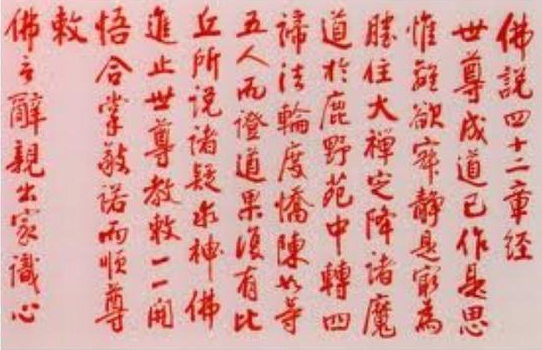 佛說四十二章經
世尊成道已作是思
惟離欲寂靜是最為
勝住大禪定降諸魔
道於鹿野苑中轉四
諦法輪度憍陳如等
五人而證道果復有比
丘所説諸疑求神佛
進止世尊教敕一一開
悟合掌敬諾而順尊
敕
佛言辭親出家識心